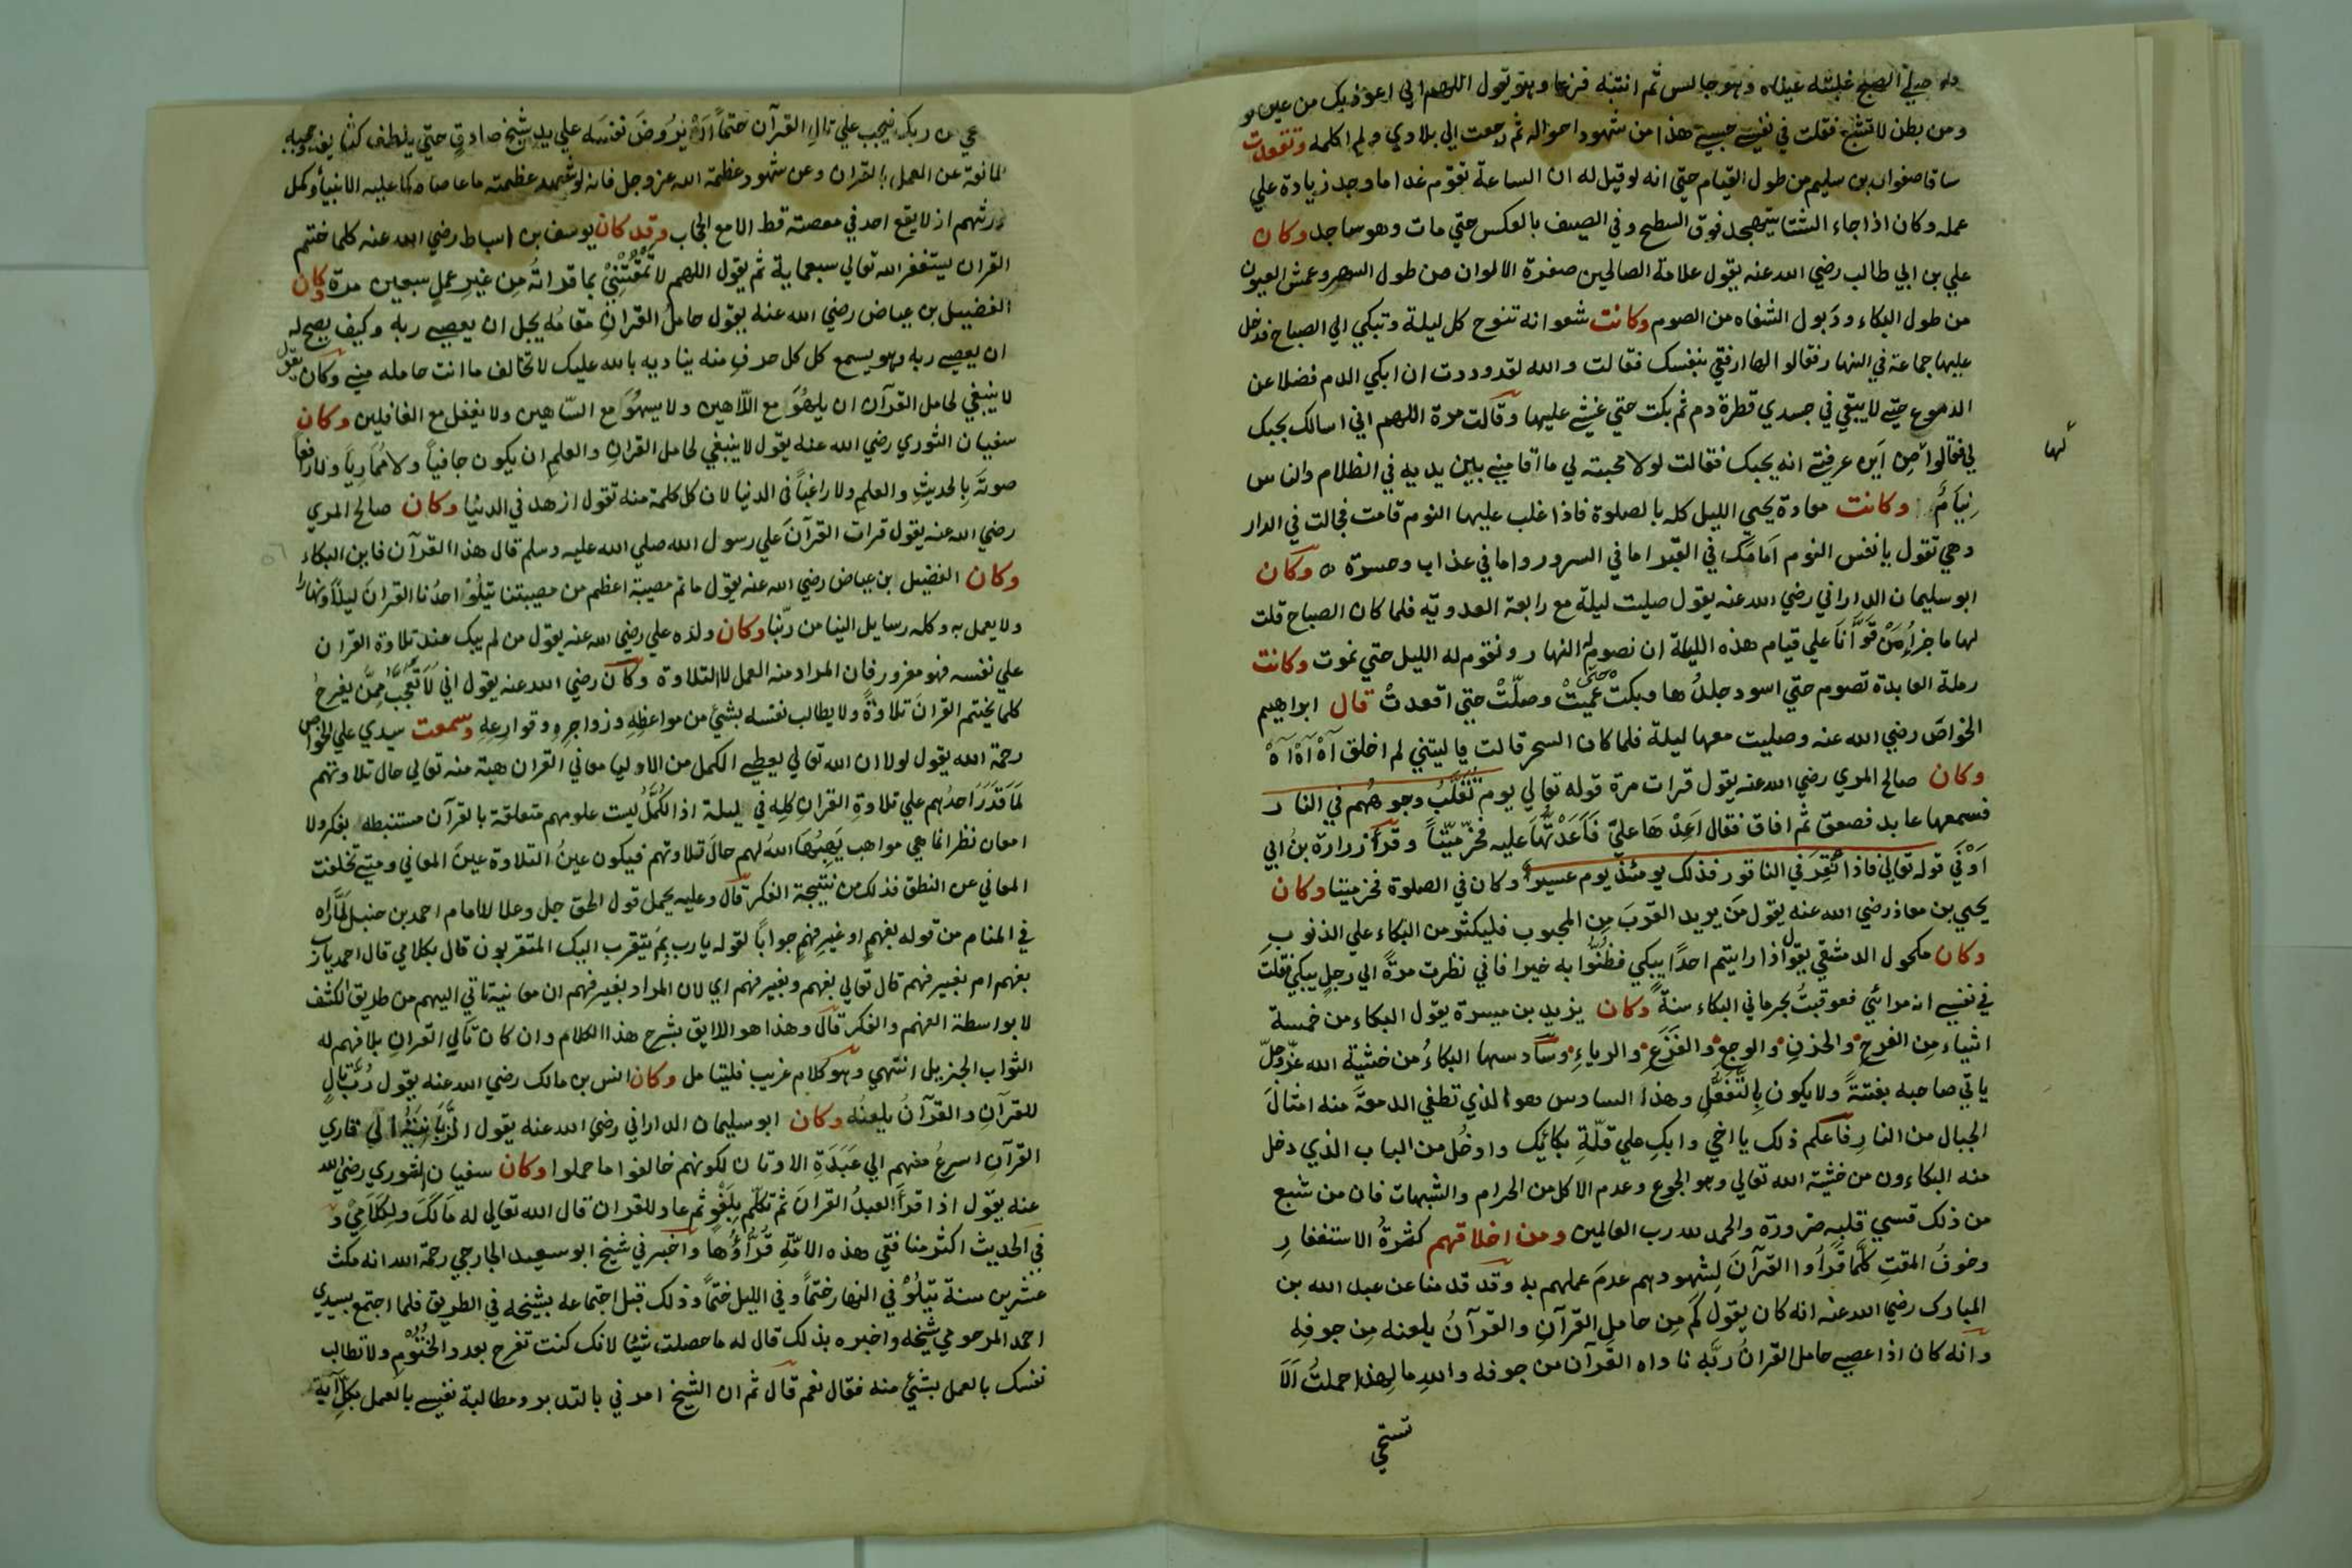 صلي الصبح غلبته عيناه وهو جالس ثم انتبه فزعا وهو يقول اللهم اني اعوذ بك من عين
ومن بطن لا تشبع فقلت في نفسي حسبي هذا من شهود احواله ثم رجعت الي بلادي ولم اكلمه وتفعدت
ساقا صفوان بن سليم من طول القيام حتي انه لو قيل له ان الساعة تقوم غدا ما وجد زيادة علي
عمله وكان اذا جاء الشتا يتهجد فوق السطح وفي الصيف بالعكس حتي مات وهو ساجد وكان
علي بن ابي طالب رضي الله عنه يقول علامة الصالحين صفرة الالوان من طول السهر وعمش العيون
من طول البكاء وذبول الشفاه من الصوم وكانت شعوانه تنوح كل ليلة وتبكي الي الصباح فدخل
عليها جماعة في النهار فقالوا لها ارفقي بنفسك فقالت والله لقد وددت ان ابكي الدم فضلا عن
الدموع حتي لا يبقي في جسدي قطرة دم ثم بكت حتي غشي عليها وقالت مرة اللهم اني اسالك بحبك
لي فقالوا من اين عرفتي انه يحبك فقالت لولا محبته لي ما اقامني بين يديه في الظلام والناس
لها
نيام وكانت معادة يحيي الليل كله بالصلوة فاذا غلب عليها النوم قامت فجالت في الدار
وهي تقول يا نفس النوم امامك في القبر اما في السرور واما في عذاب وحسرة ه وكان
ابو سليمان الداراني رضي الله عنه يقول صليت ليلة مع رابعة العدويه فلما كان الصباح قلت
لها ما جزاء من قوانا علي قيام هذه الليلة ان نصوم له النهار ونقوم له الليل حتي نموت وكانت
رملة العابدة تصوم حتي اسود جلدها وبكت حتي عميت وصلت حتي اقعدت قال ابراهيم
الخواص رضي الله عنه وصليت معها ليلة فلما كان السحر قالت يا ليتني لم اخلق آه آه آه
وكان صالح المري رضي الله عنه يقول قرات مرة قوله تعالي يوم تقلب وجوههم في النار
فسمعها عابد فصعق ثم افاق فقال اعدها علي فاعدتها عليه فخر ميتا وقرأ زرارة بن ابي
اوفي قوله تعالي فاذا نقر في الناقور فذلك يومئذ يوم عسير وكان في الصلوة فخر ميتا وكان
يحيي بن معاذ رضي الله عنه يقول من يريد القرب من المحبوب فليكثر من البكاء علي الذنوب
وكان مكحول الدمشقي يقول اذا رايتم احدا يبكي فظنوا به خيرا فاني نظرت مرة الي رجل يبكي فقلت
في نفسي انه مرائي فعوقبت بحرماني البكاء سنة وكان يزيد بن ميسرة يقول البكاء من خمسة
اشياء من الفرح والحزن والوجع والفزع والرياء وسادسها البكاء من خشية الله عز وجل
ياتي صاحبه بغتة ولا يكون بالتفعل وهذا السادس هو الذي تطفي الدمعة منه امثال
الجبال من النار فاعلم ذلك يا اخي وابك علي قلة بكائك وادخل من الباب الذي دخل
منه البكاءون من خشية الله تعالي وهو الجوع وعدم الاكل من الحرام والشبهات فان من شبع
من ذلك قسي قلبه ضرورة والحمد لله رب العالمين ومن اخلاقهم كثرة الاستغفار
وخوف المقت كلما قرأوا القرآن لشهودهم عدم عملهم به وقد قدمنا عن عبد الله بن
المبارك رضي الله عنه انه كان يقول كم من حامل القرآن والقرآن يلعنه من جوفه
وانه كان اذا عصي حامل القران ربه ناداه القرآن من جوفه والله ما لهذا حملت الا
تستحي
من ربك فيجب علي تال القرآن حتما ان يروض نفسه علي يد شيخ صادق حتي يلطف كثايف حجبه
المانعة عن العمل بالقران وعن شهود عظمة الله عز وجل فانه لو شهد عظمته ما عصاه كما عليه الانبيأ وكمل
ورثتهم اذ لا يقع احد في معصته قط الا مع الحجاب وقد كان يوسف بن اسباط رضي الله عنه كلما ختم
القران يستغفر الله تعالي سبعماية ثم يقول اللهم لا تمقتني بما قراته من غير عمل سبعين مرة وكان
الفضيل بن عياض رضي الله عنه يقول حامل القران مقامه يجل ان يعصي ربه وكيف يصح له
ان يعصي ربه وهو يسمع كل كل حرف منه يناديه بالله عليك لا تخالف ما انت حامله مني وكان يقول
لا ينبغي لحامل القرآن ان يلهو مع اللاهين ولا يسهو مع الساهين ولا يغفل مع الغافلين وكان
سفيان الثوري رضي الله عنه يقول لا ينبغي لحامل القران والعلم ان يكون جافيا ولا مماريا ولا رافعا
صوته بالحديث والعلم ولا راغبا في الدنيا لان كل كلمة منه تقول ازهد في الدنيا وكان صالح المري
رضي الله عنه يقول قرات القرآن علي رسول الله صلي الله عليه وسلم قال هذا القرآن فاين البكاء
وكان الفضيل بن عياض رضي الله عنه يقول ما تم مصيبة اعظم من مصيبتنا يتلوا احدنا القران ليلا ونهارا
ولا يعمل به وكله رسايل الينا من ربنا وكان ولده علي رضي الله عنه يقول من لم يبك عند تلاوة القران
علي نفسه فهو مغرور فان المراد منه العمل لا التلاوة وكان رضي الله عنه يقول اني لاتعجب ممن يفرح
كلما يختم القران تلاوة ولا يطالب نفسه بشئ من مواعظه وزواجره وقوارعه وسمعت سيدي علي الخواص
رحمة الله يقول لولا ان الله تعالي يعطي الكمل من الاوليا معاني القران هبة منه تعالي حال تلاوتهم
لما قدر احدهم علي تلاوة القران كله في ليلة اذ الكمل ليست علومهم متعلقة بالقرآن مستنبطه بفكر ولا
امعان نظر انما هي مواهب يهبها الله لهم حال تلاوتهم فيكون عين التلاوة عين المعاني ومتي تخلفت
المعاني عن النطق فذلك من نتيجة الفكر قال وعليه يحمل قول الحق جل وعلا للامام احمد بن حنبل لما راه
في المنام من قوله بفهم او غير فهم جوابا لقوله يا رب بم يتقرب اليك المتقربون قال بكلامي قال احمد يا رب
بفهم ام بغير فهم قال تعالي بفهم وبغير فهم اي لان المراد بغير فهم ان معانيه تاتي اليهم من طريق الكشف
لا بواسطة الفهم والفكر قال وهذا هو الاليق بشرح هذا الكلام وان كان تالي القران بلا فهم له
الثواب الجزيل انتهي وهو كلام غريب فليتامل وكان انس بن مالك رضي الله عنه يقول رب تال
للقرآن والقرآن يلعنه وكان ابو سليمان الداراني رضي الله عنه يقول الزبانية الي قاري
القرآن اسرع منهم الي عبدة الاوثان لكونهم خالفوا ما حملوا وكان سفيان الثوري رضي الله
عنه يقول اذا قرأ العبد القران ثم تكلم بلغو ثم عاد للقران قال الله تعالي له مالك ولكلامي و
في الحديث اكثر منافقي هذه الامة قراؤها واخبرني شيخ ابو سعيد الجارحي رحمة الله انه مكث
عشرين سنة يتلو في النهار ختما وفي الليل ختما وذلك قبل اجتماعه بشيخه في الطريق فلما اجتمع بسيدي
احمد المرحومي شيخه واخبره بذلك قال له ما حصلت شيئا لانك كنت تفرح بعدد الختوم ولا تطالب
نفسك بالعمل بشئ منه فقال نعم قال ثم ان الشيخ امرني بالتدبر ومطالبة نفسي بالعمل بكل آية